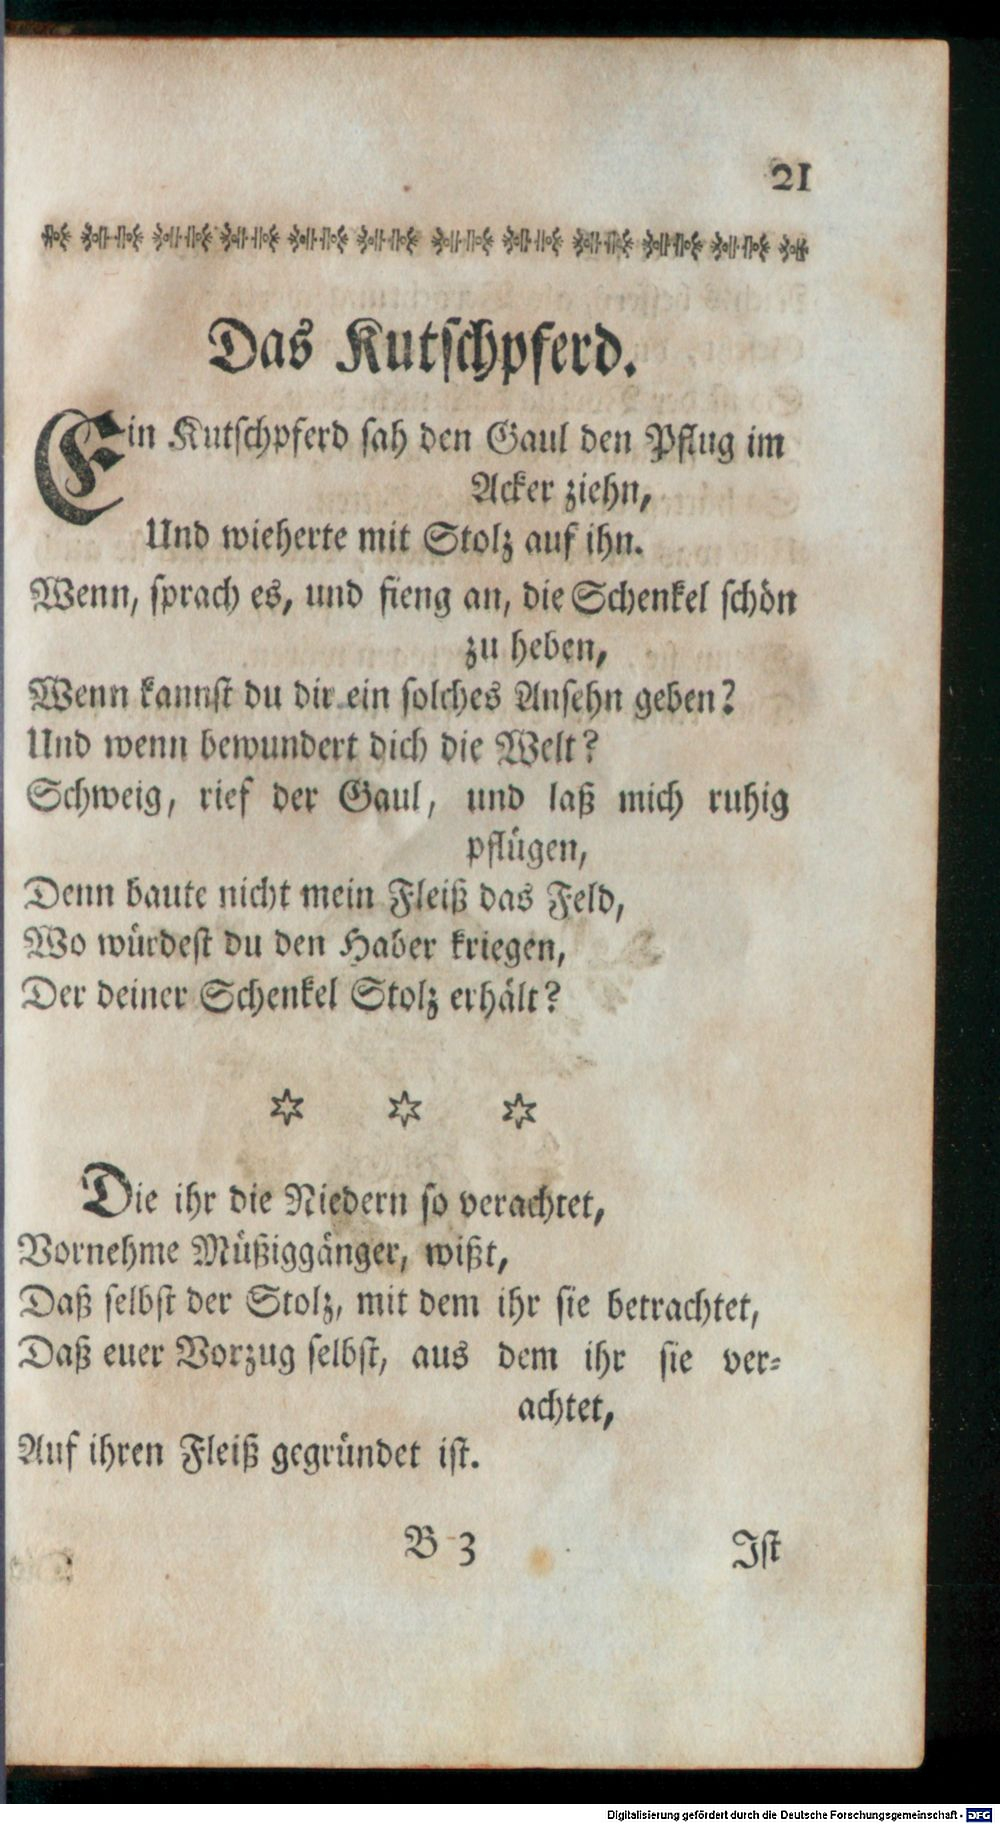 21
Das Kutschpferd.
Ein Kutschpferd sah den Gaul den Pflug im
Acker ziehn,
Und wieherte mit Stolz auf ihn.
Wenn, sprach es, und fieng an, die Schenkel schön
zu heben,
Wenn kannst du dir ein solches Ansehn geben?
Und wenn bewundert dich die Welt?
Schweig, rief der Gaul, und laß mich ruhig
pflügen,
Denn baute nicht mein Fleiß das Feld,
Wo würdest du den Haber kriegen,
Der deiner Schenkel Stolz erhält?
Die ihr die Niedern so verachtet,
Vornehme Müßiggänger, wißt,
Daß selbst der Stolz, mit dem ihr sie betrachtet,
Daß euer Vorzug selbst, aus dem ihr sie ver-
achtet,
Auf ihren Fleiß gegründet ist.
B 3 Ist
Digitalisierung gefördert durch die Deutsche Forschungsgemeinschaft - DFG